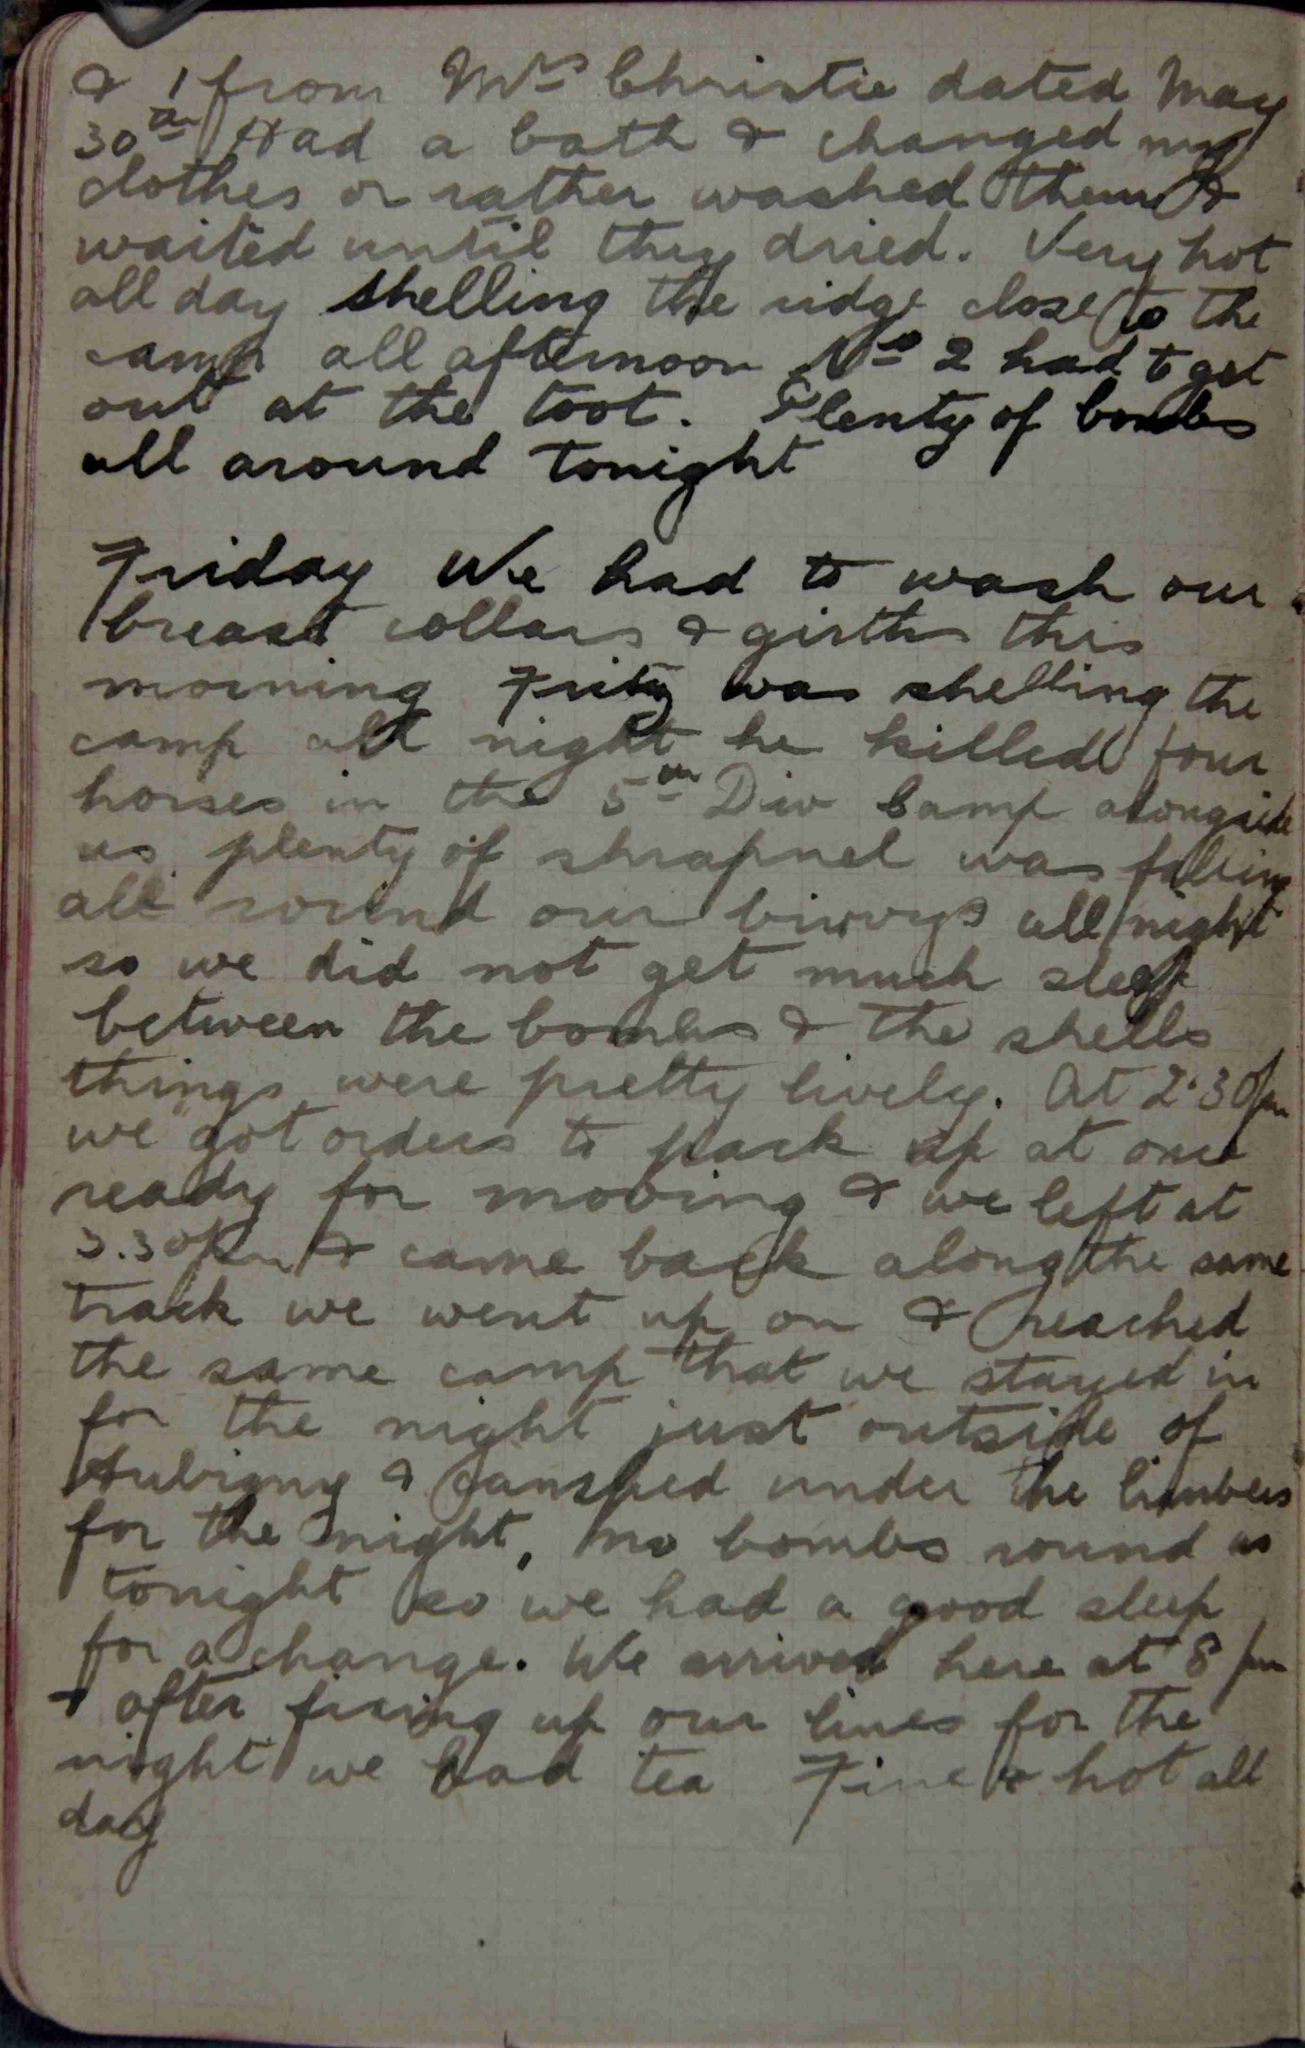 & 1 from Mrs Christie dated May
30th Had a bath & changed my
clothes or rather washed them &
waited until they dried. Very hot
all day shelling the ridge close to the
camp all afternoon No 2 had to get
out at the toot. Plenty of bombs
all around tonight
Friday We had to wash our
breast collars & girths this
morning Fritz was shelling the
camp all night he killed four
horses in the 5th Div Camp alongside
us plenty of shrapnel was falling
all round our bivvys all night
so we did not get much sleep
between the bombs & the shells
things were pretty lively. At 2.30pm
we got orders to pack up at once
ready for moving & we left at
3.30pm & came back along the same
track we went up on & reached
the same camp that we stayed in
for the night just outside of
Aubigny & camped under the limbers
for the night, no bombs round us
tonight so we had a good sleep
for a change. We arrived here at 8 pm
& after fixing up our lines for the
night we had tea Fine & hot all
day